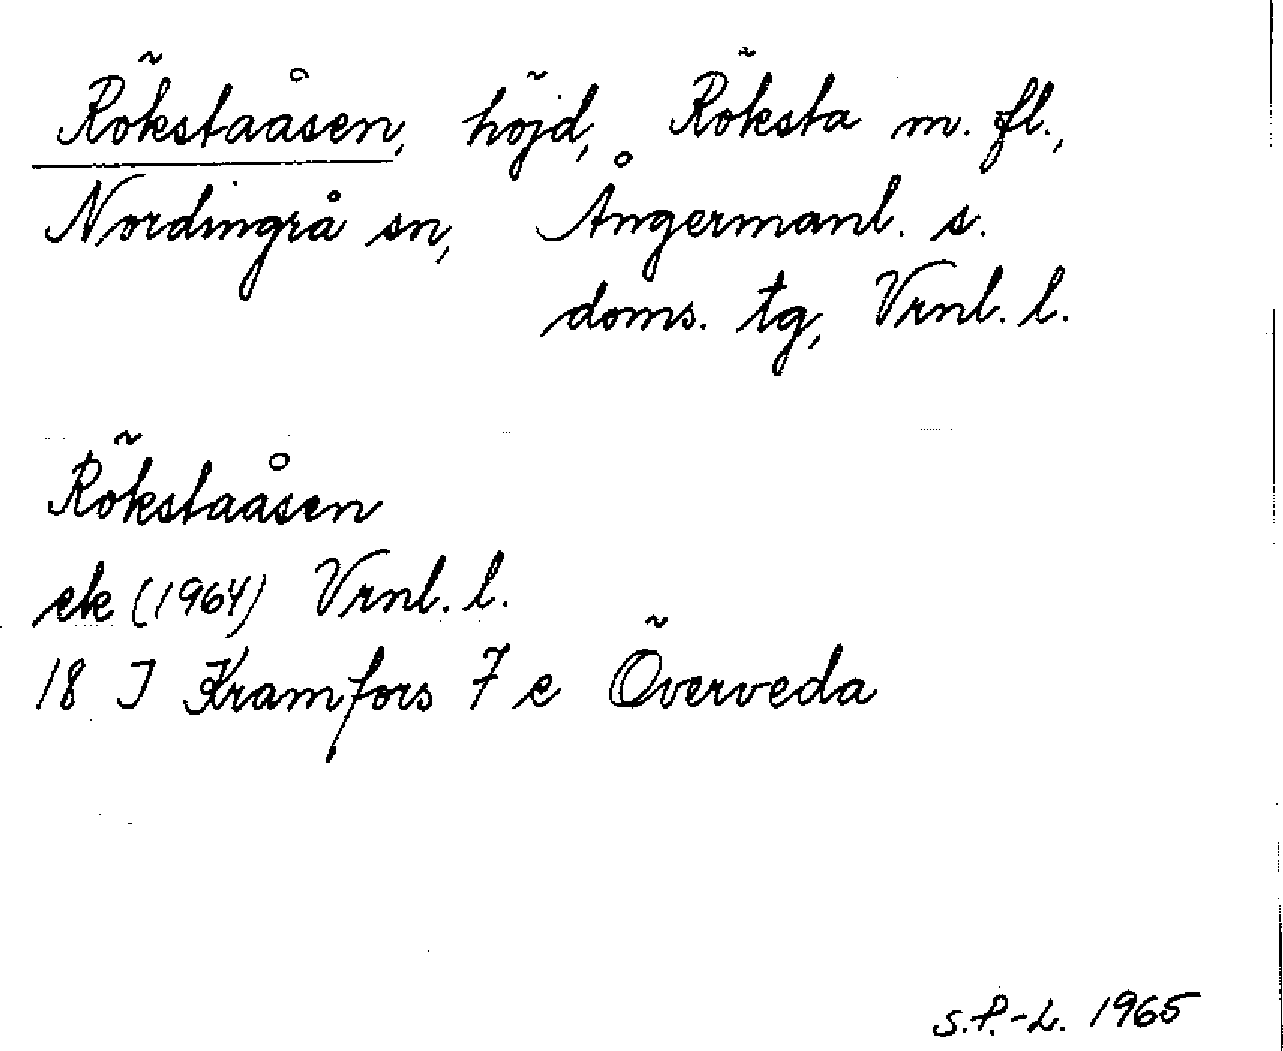 Rökstaåsen, höjd, Röksta m. fl.,
Nordingrå sn, Ångermanl. s.
doms. tg, Vrnl. l.
Rökstaåsen
ek (1964) Vrnl. l.
18 I Kramfors 7 e Överveda
S.P.-L. 1965